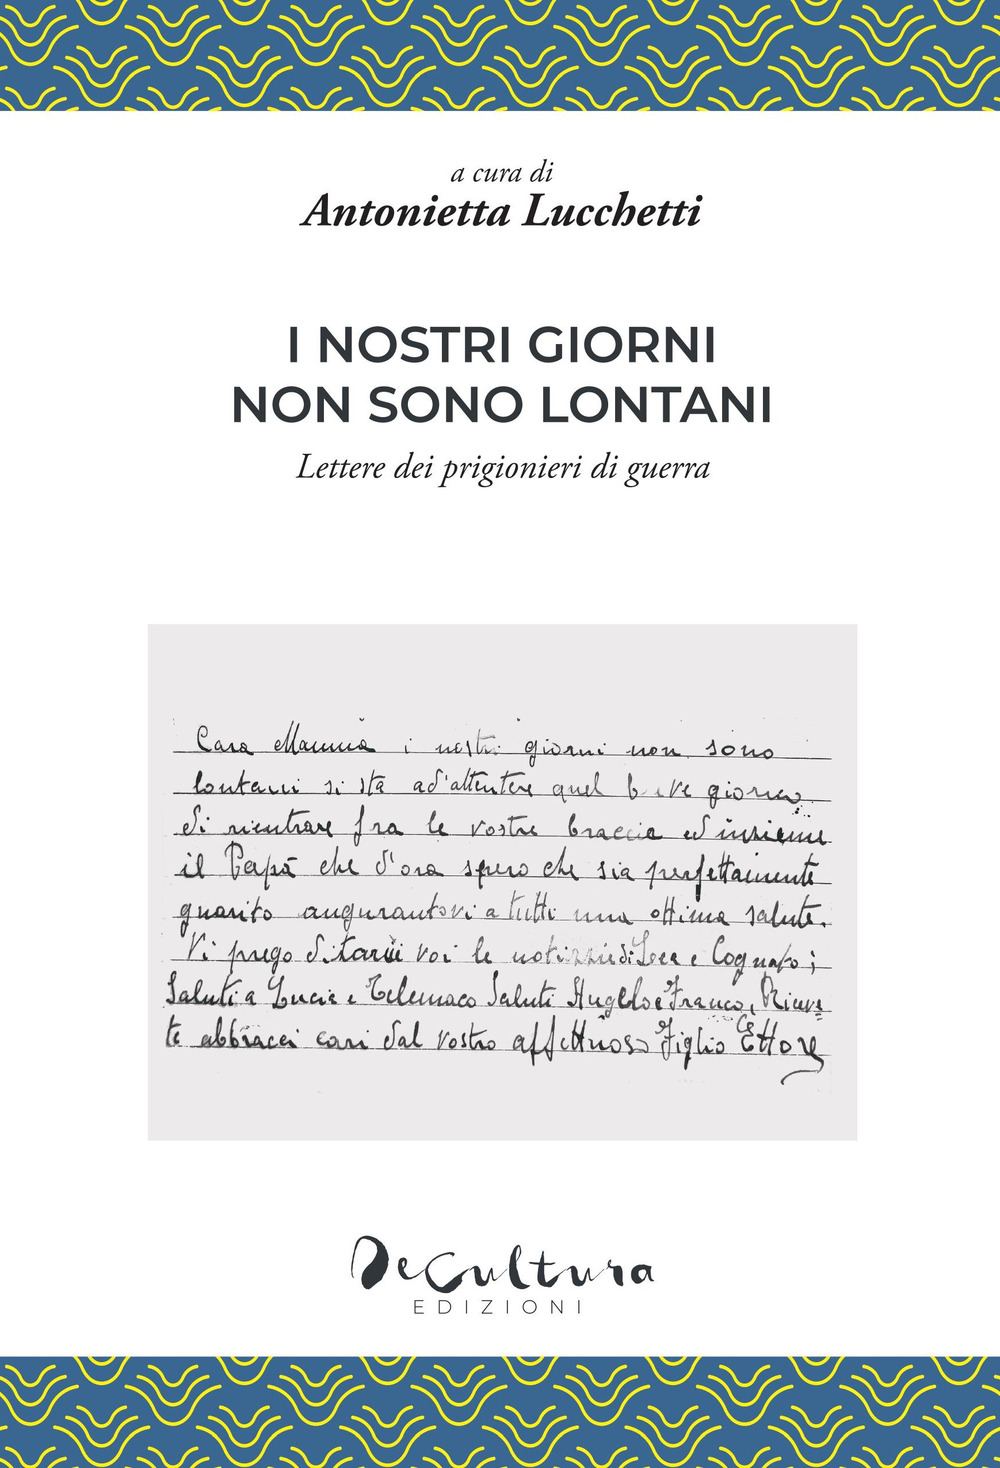 a cura di
Antonietta Lucchetti
I NOSTRI GIORNI
NON SONO LONTANI
Lettere dei prigionieri di guerra
Cara Mamma i nostri giorni non sono
lontani si sta ad'attentere quel breve giorno
di rientrare fra le vostre braccia ed insieme
il Papà che d'ora spero che sia perfettamente
guarito augurantovi a tutti una ottima salute.
Vi prego di tarmi voi le notizzie di e Cognato;
Saluti a Lucia e Telemaco Saluti e Franco, Riceve
te abbracci cari dal vostro affettuoso Figlio Ettore
DeCultura
EDIZIONI